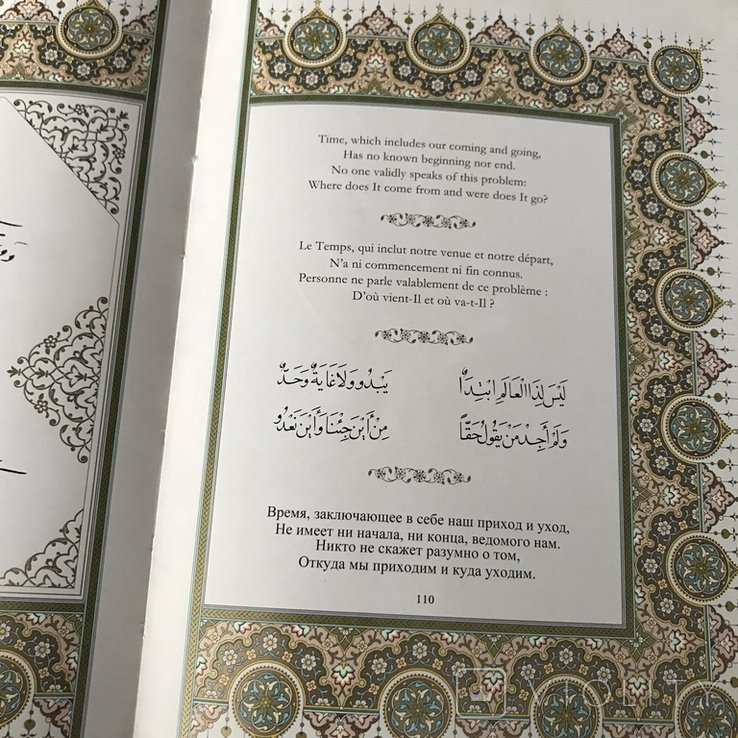 Time, which includes our coming and going,
Has no known beginning nor end.
No one validly speaks of this problem:
Where does It come from and were does It go?
Le Temps, qui inclut notre venue et notre départ,
N'a ni commencement ni fin connus.
Personne ne parle valablement de ce problème :
D'où vient-Il et où va-t-Il ?
لَيْسَ لِذَا الْعَالَمِ ابْتِدَاءٌ يَبْدُو وَلَا غَايَةٌ وَحَدٌّ
وَلَمْ أَجِدْ مَنْ يَقُولُ حَقًّا مِنْ أَيْنَ جِئْنَا وَأَيْنَ نَغْدُو
Время, заключающее в себе наш приход и уход,
Не имеет ни начала, ни конца, ведомого нам.
Никто не скажет разумно о том,
Откуда мы приходим и куда уходим.
110
VIOLITY